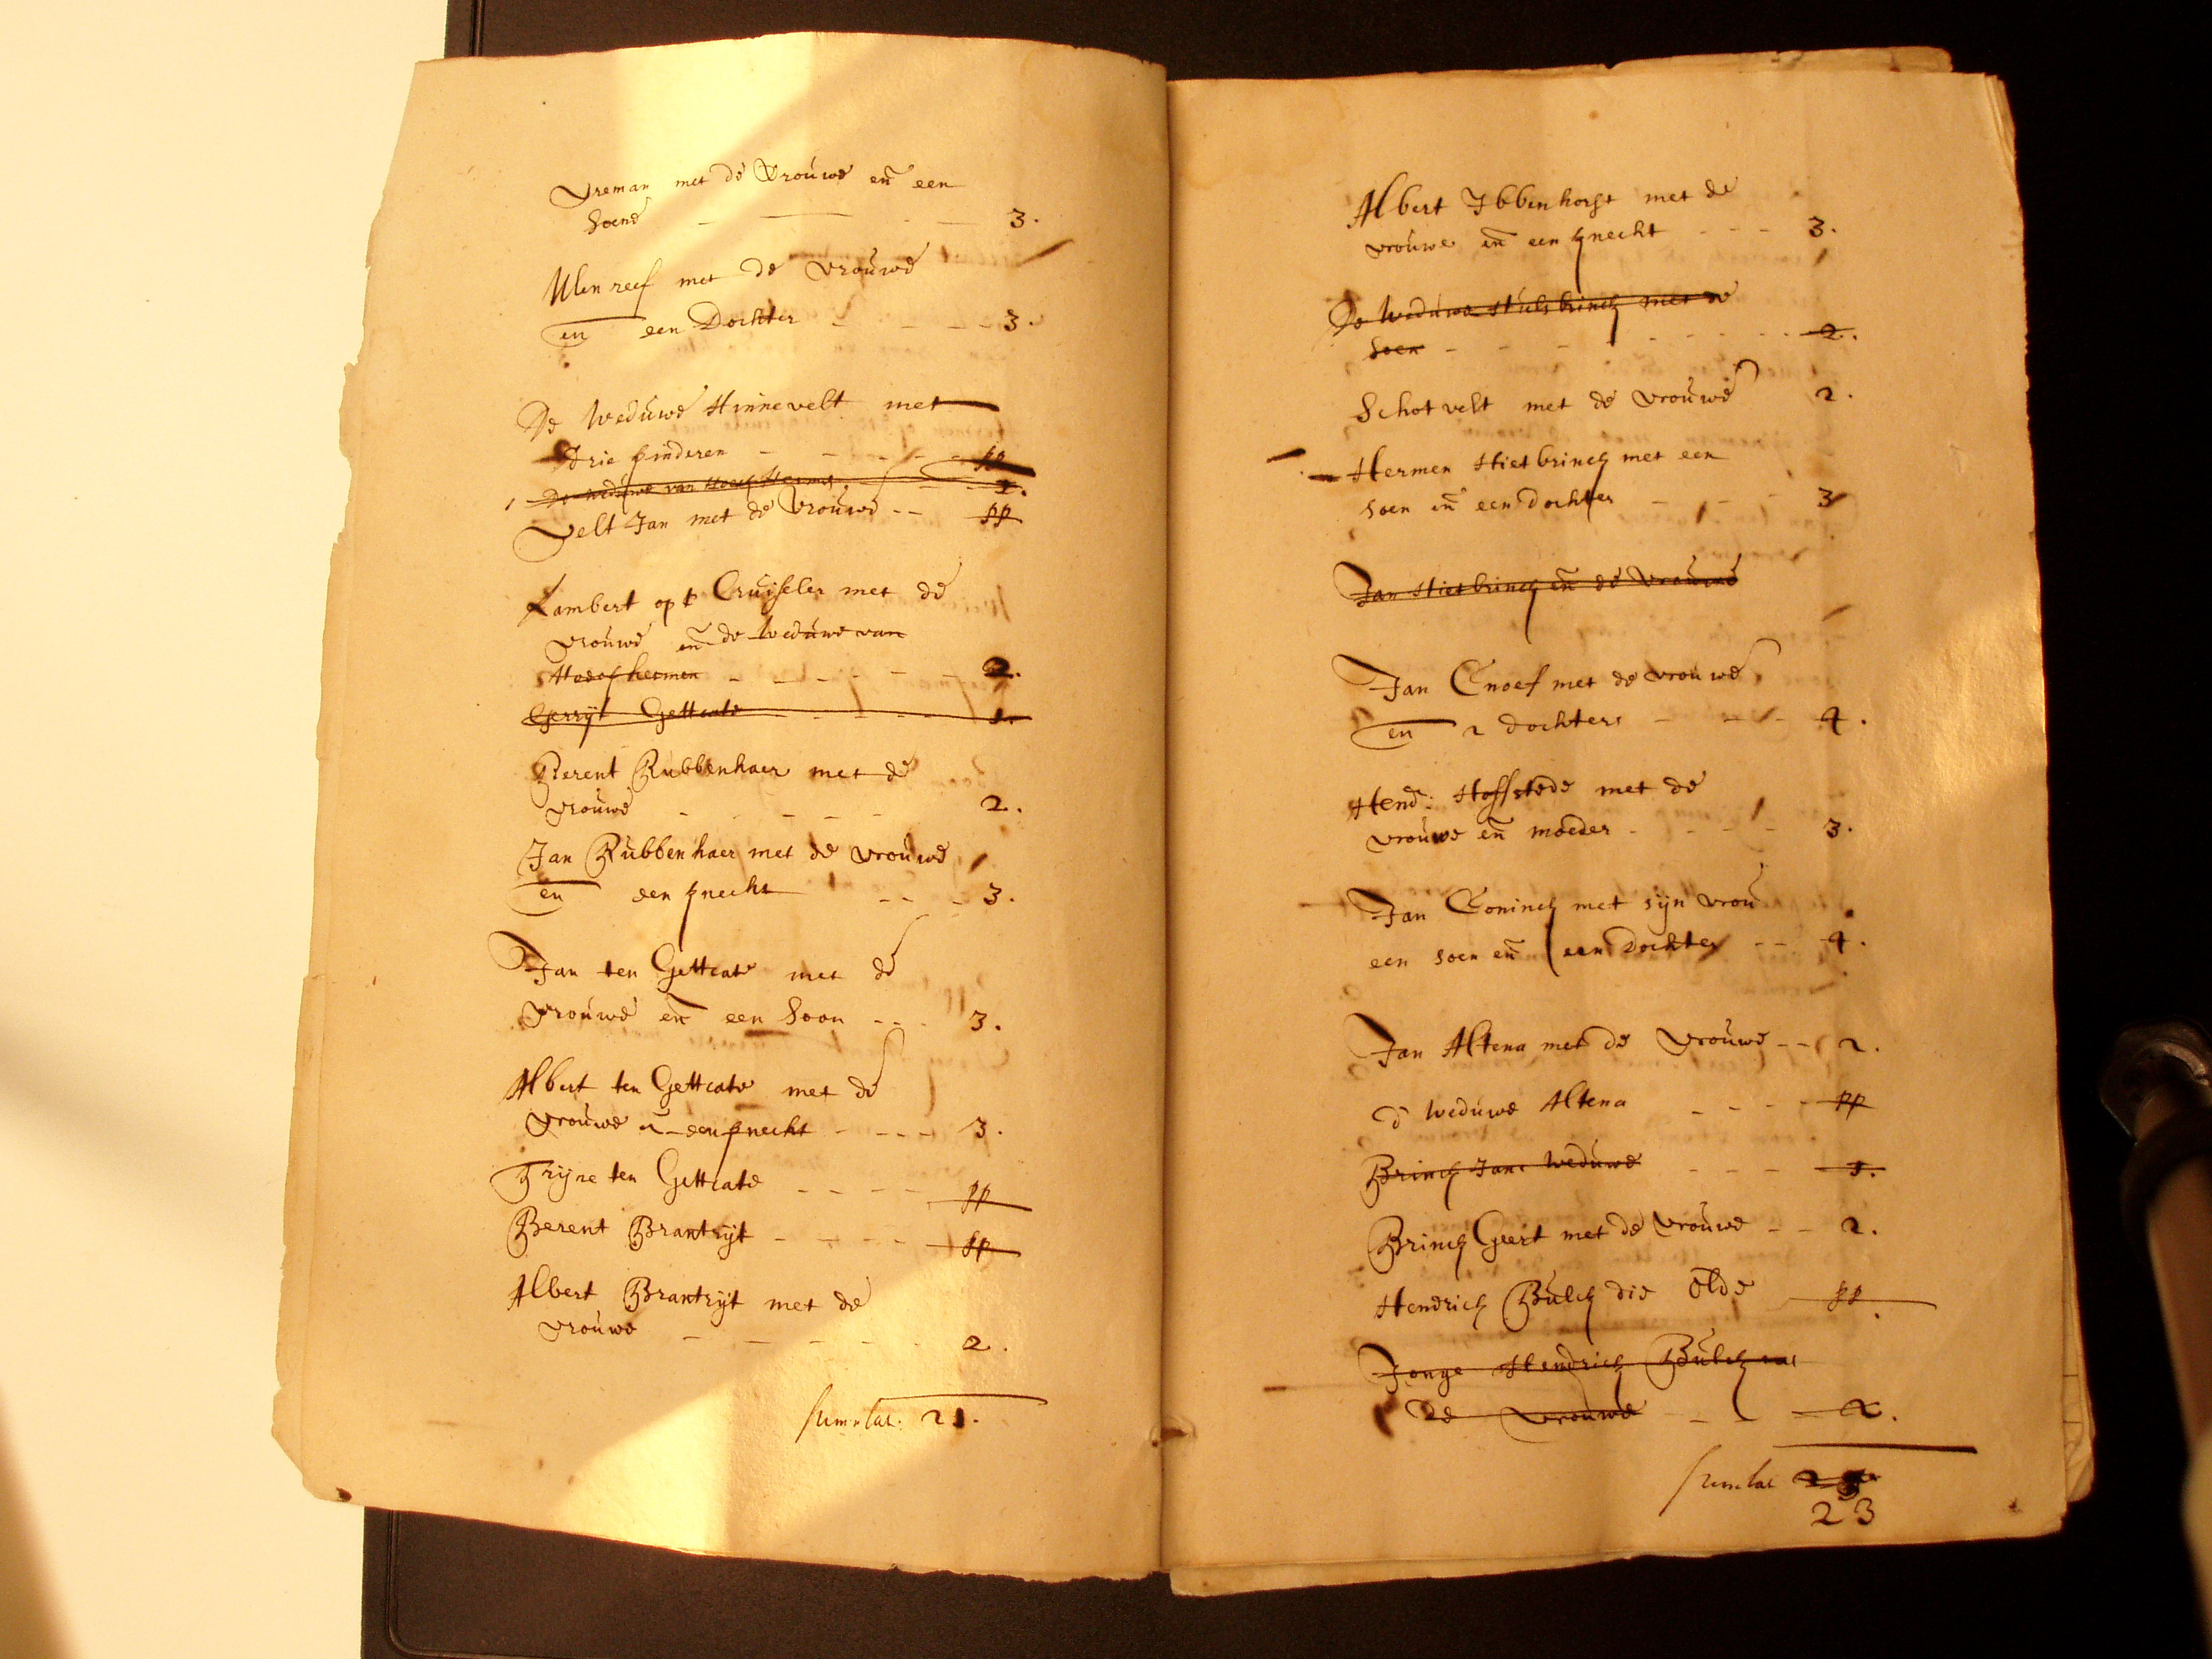 Vreman met de Vrouwe en̄ een
soene - - - 3.
Ulenreef met de vrouwe
en een Dochter - - - - 3.
De Weduwe Hinnevelt met
drie kinderen - - - - pp
De weduwe van Hoeof Hermen - - 1.
Velt Jan met de Vrouwe - - pp
Lambert opt Cruijseler met de
vrouwe en̄ de weduwe van
Hoeof hermen - - - - - 2.
Gerrijt Gettcate - - - - 1.
Berent Bubbenhaer met de
vrouwe - - - - - 2.
Jan Bubbenhaer met de vrouwe
en een knecht - - - 3.
Jan ten Gettcate met de
Vrouwe en̄ een Soon - - - 3.
Albert ten Gettcate met de
Vrouwe en̄ een knecht - - - - 3.
Trijne ten Gettcate - - - - pp
Berent Brantrijt - - - - - pp
Albert Brantrijt met de
vrouwe - - - - - - 2.
sum lat. 21.
Albert Ibbenhorst met de
vrouwe en̄ een knecht - - - 3.
De Weduwe Hielsbrinck met de
soen - - - - - - - - 2.
Schotvelt met de vrouwe 2.
Hermen Hietbrinck met een
soen en̄ een dochter - - - 3
Jan Hietbrinck en̄ de vrouwe
Jan Cnoef met de vrouwe
en 2 dochters - - - 4.
Hend: Hoffstede met de
vrouwe en̄ moeder - - - - 3.
Jan Coninck met sijn vrou
een soen en̄ een dochter - - 4.
Jan Altena met de Vrouwe - - 2.
d weduwe Altena - - - - pp
Brinck Jans weduwe - - - 1.
Brinck Geert met de vrouwe - - 2.
Hendrick Bulck die olde pp
Jonge Hendrick Bulck met
de vrouwe - - - 2.
sum lat
23